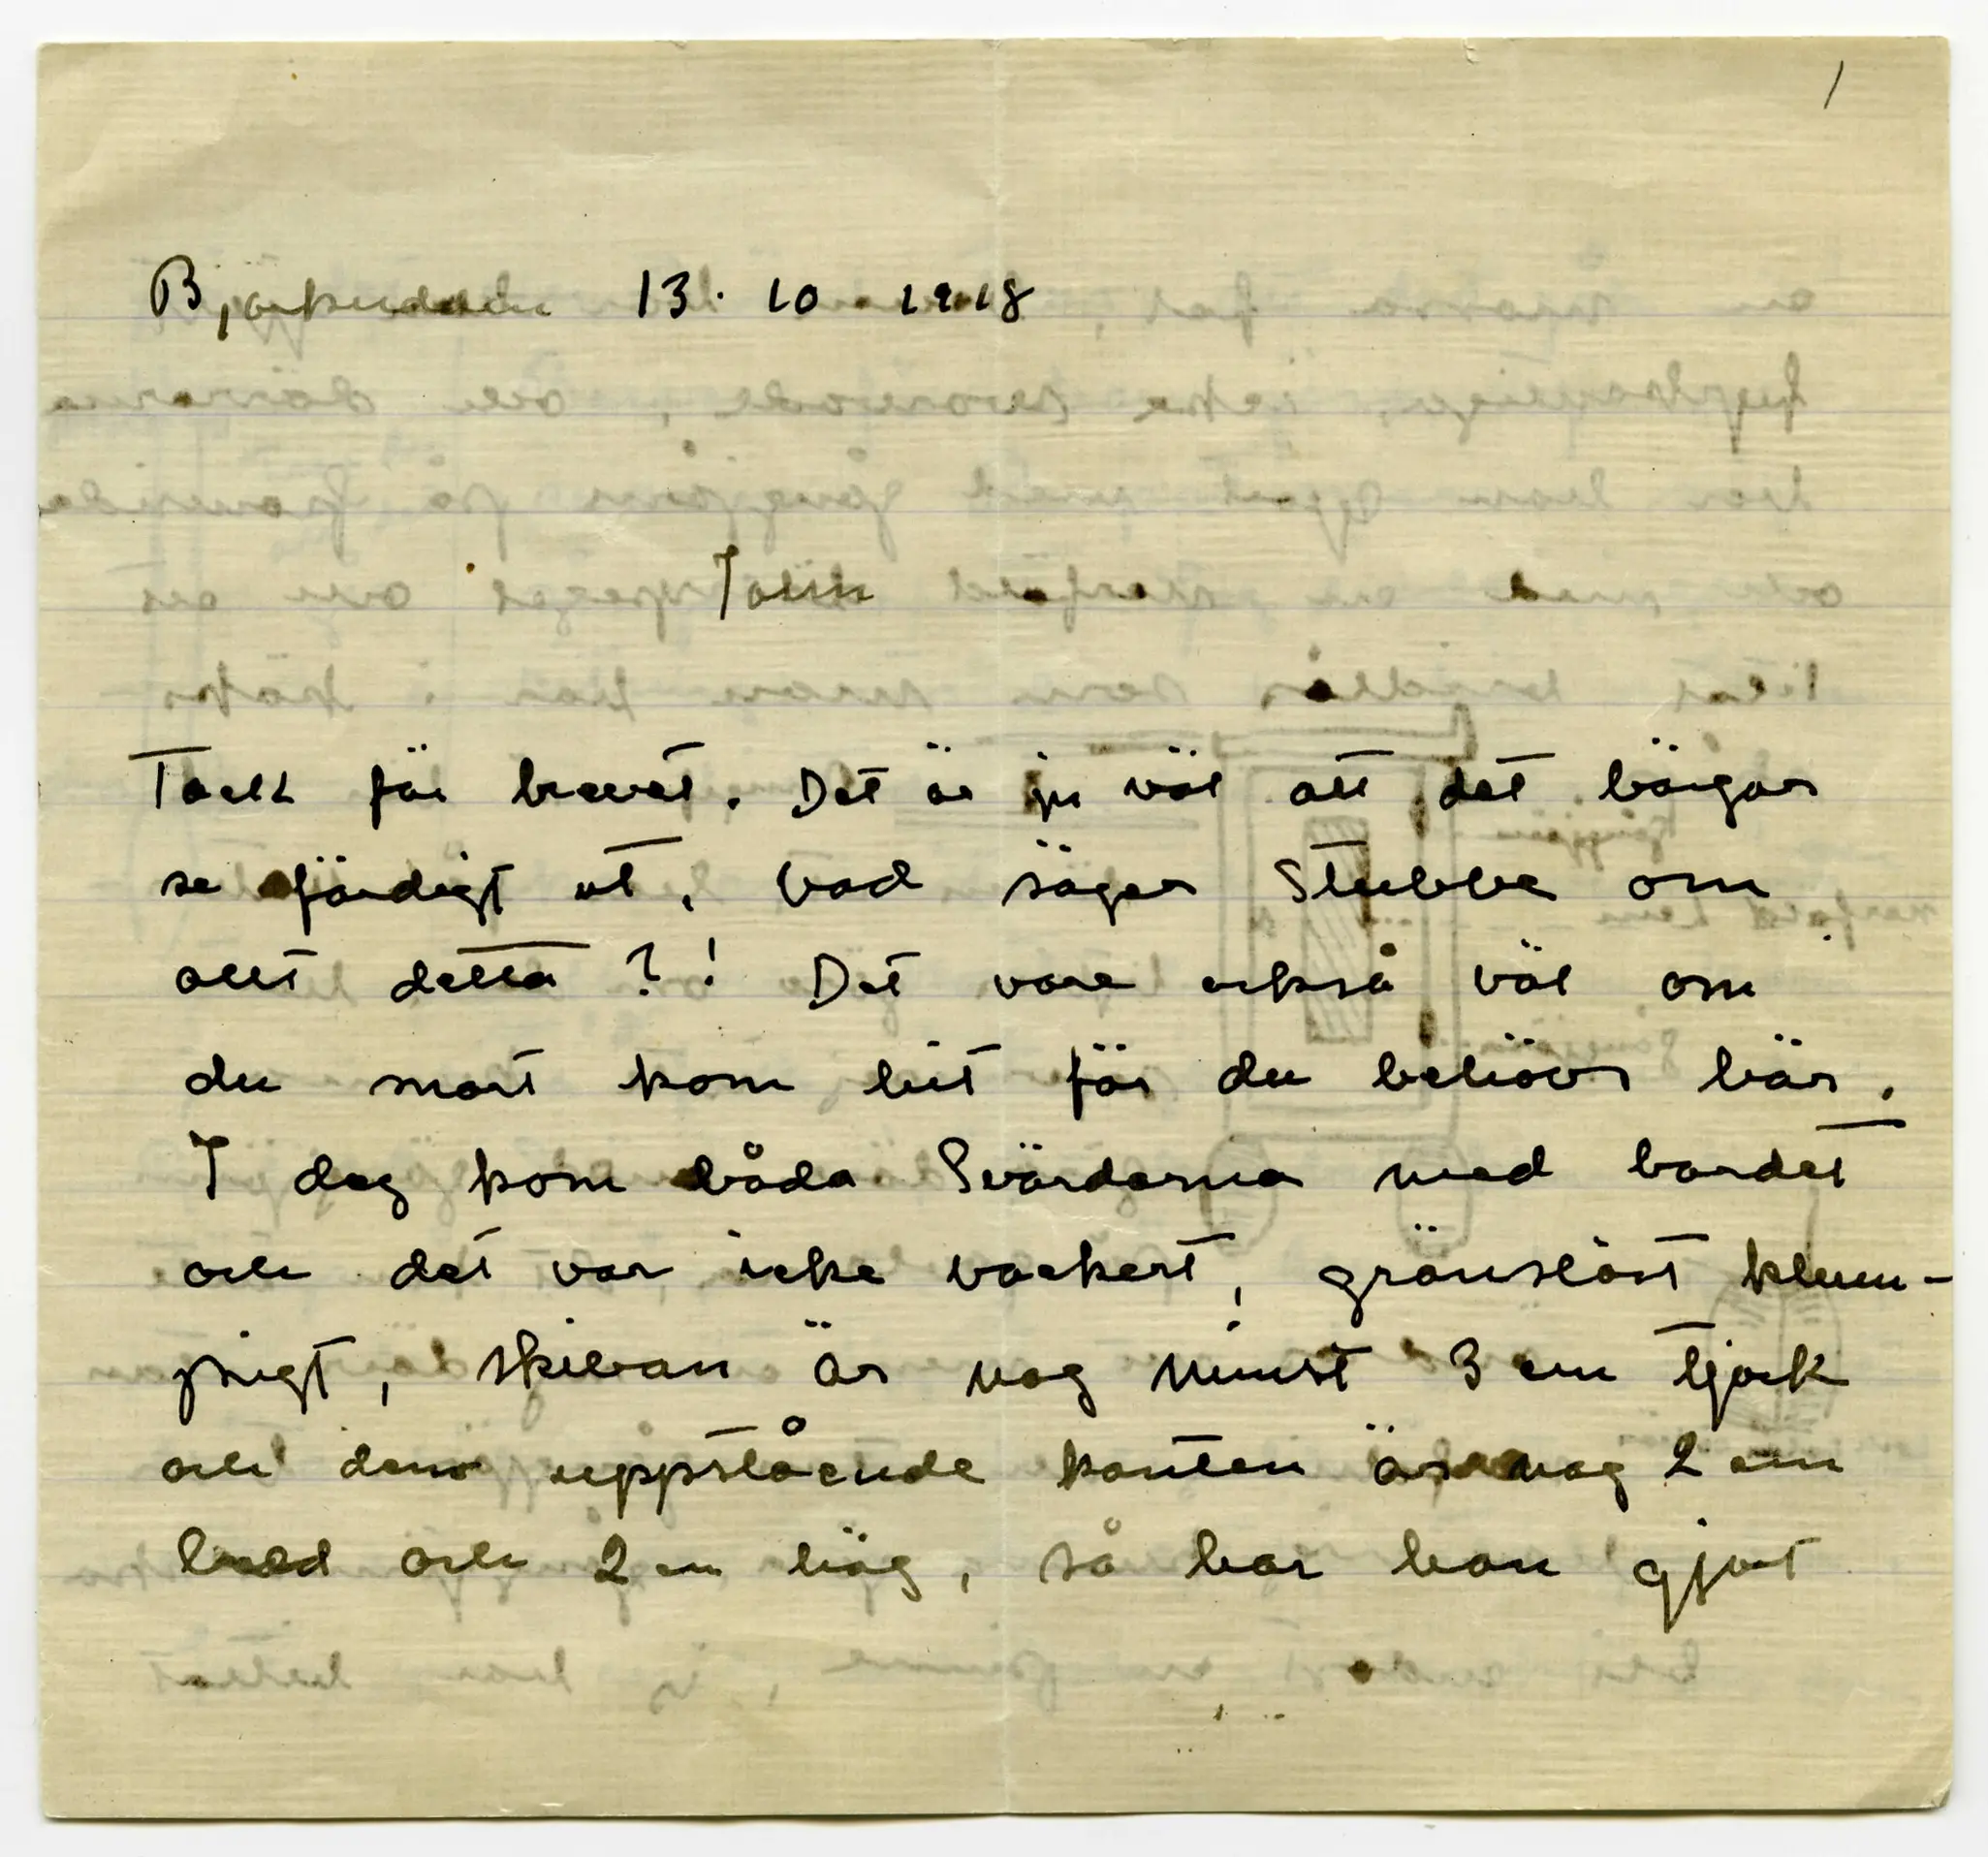 1
Björkudden 13. 10 1918
Tack för brevet. Det är ju väl att det börjar
se färdigt ut, vad säger Stubbe om
allt detta ? ! Det vore också väl om
du snart kom hit för du behövs här.
I dag kom båda Svärdarna med bordet
och det var icke vackert, gränslöst klum-
pigt, skivan är nog minst 3 cm tjock
och den uppstående kanten är nog 2 cm
bred och 2 cm hög, så har han gjort